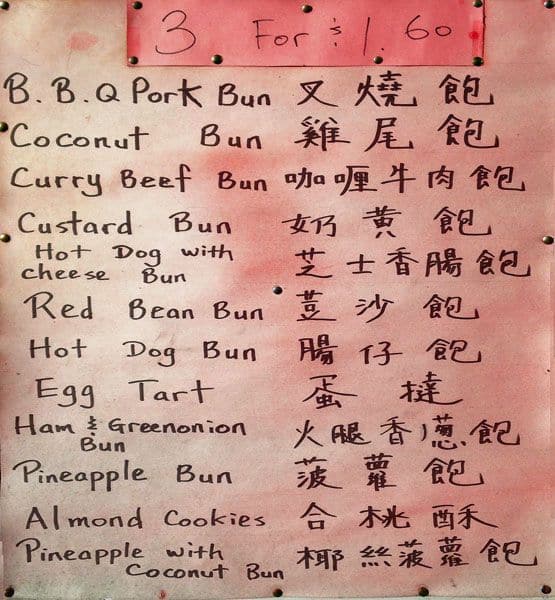 3 For $1.60
B.B.Q Pork Bun 叉燒飽
Coconut Bun 雞尾飽
Curry Beef Bun 咖喱牛肉飽
Custard Bun 奶黃飽
Hot Dog with
cheese Bun 芝士香腸飽
Red Bean Bun 荳沙飽
Hot Dog Bun 腸仔飽
Egg Tart 蛋撻
Ham & Greenonion
Bun 火腿香蔥飽
Pineapple Bun 菠蘿飽
Almond Cookies 合桃酥
Pineapple with
Coconut Bun 椰絲菠蘿飽